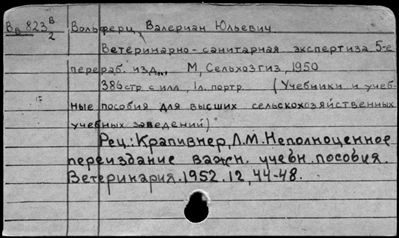 Вв 823 в/2 Вольферц, Валериан Юльевич.
Ветеринарно-санитарная экспертиза. 5-е
перераб. изд., М, Сельхозгиз, 1950
386стр. с илл., 1л. портр. (Учебники и учеб-
ные пособия для высших сельскохозяйственных
учебных заведений)
Рец.: Крапивнер, Л.М. Неполноценное
переиздание важн. учебн. пособия.
Ветеринария. 1952. 12, 44-48.